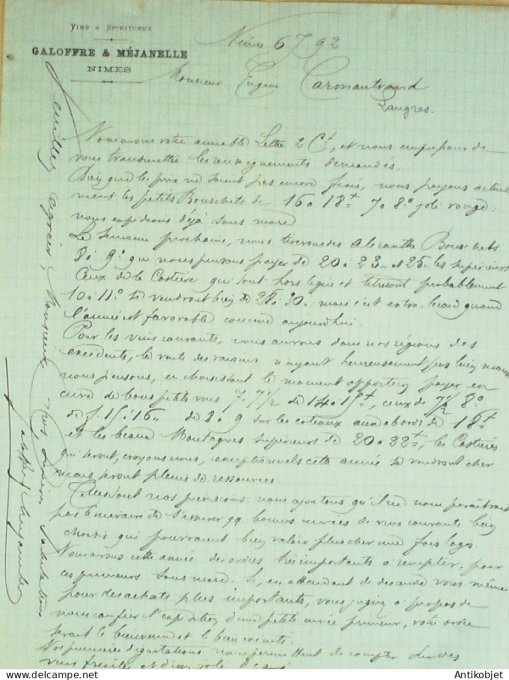 VINS & SPIRITUEUX
GALOFFRE & MÉJANELLE
NIMES
Nimes 6 7 92
Monsieur Eugène Carmantrand
Langres.
Nous avons votre aimable Lettre 2 Ct, et nous empressons de
vous transmettre les renseignements demandés.
Bien que les prix ne soient pas encore fixés, nous payons actuel
lement les petits Bouschets de 16 à 18f 7 à 8° joli rouge.
nous expédions déjà sous mare
La semaine prochaine, nous Alicante Bouschets
8 à 9° que nous pensons payer de 20 à 23 et 25 les supérieurs
Ceux de la Costière qui sont hors ligne et probablement
10 à 11° se vendront bien de 28 à 30 mais c'est extra beau quand
l'année est favorable comme aujourd'hui
Pour les vins courants, nous aurons dans nos régions des
excédents, la vente des raisins n'ayant heureusement pas
nous pensons, en choisissant le moment opportun payer en
cuve de bons petits vins 7. 7½ de 14 à 15f, ceux de 7½ 8°
de f. 15 à 16 de 8 à 9 sur les coteaux aux abords de 18f
et les beaux Montagnes supérieurs de 20 à 22f, les Costières
qui seront, croyons nous, exceptionnels cette année se vendront cher
mais seront pleins de ressources.
Telles sont nos prévisions: nous ajoutons qu'il ne nous paraîtrait
pas téméraire de s'assurer qq. bonnes cuvées de vins courants bien
choisis qui pourraient bien valoir plus cher une fois logés.
Nous avons cette année des ordres très importants à remplir, pour
ces primeurs sous mare. Si, en attendant de descendre vous même
pour des achats plus importants, vous jugiez à propos de
nous confier l'expédition d'une petite cuvée primeur, votre ordre
serait le bienvenu et le bien exécuté.
Nos premières dégustations nous permettent de compter sur des
vins fruités et d'un
Veuillez agréer, Monsieur, nos Salutations